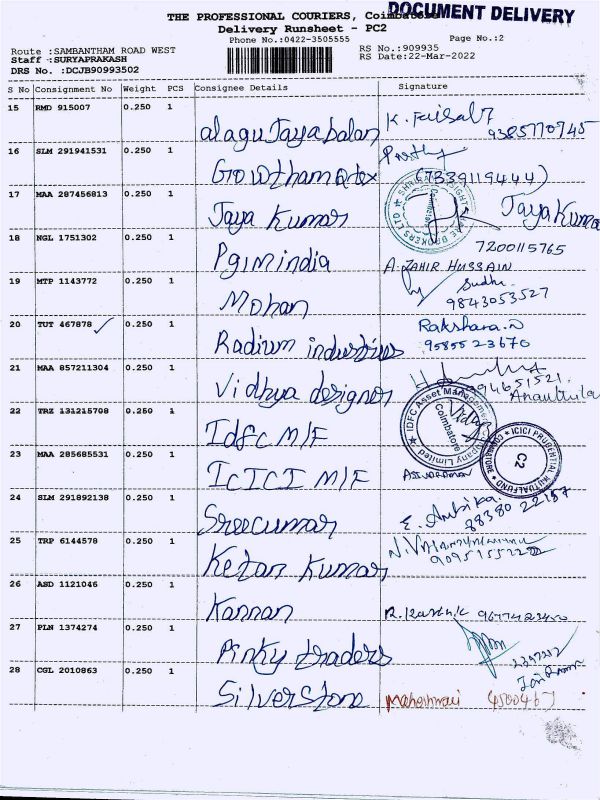 DOCUMENT DELIVERY
THE PROFESSIONAL COURIERS, Coimbatore
Delivery Runsheet - PC2
Phone No.:0422-3505555 Page No.:2
Route :SAMBANTHAM ROAD WEST RS No.:909935
Staff :SURYAPRAKASH RS Date:22-Mar-2022
DRS No. :DCJB90993502
S No Consignment No Weight PCS Consignee Details Signature
15 RMD 915007 0.250 1 alagu Jayabalan K. Faisal
9385770745
16 SLM 291941531 0.250 1 Gowtham
(7339119444)
17 MAA 287456813 0.250 1 Jaya Kumar Jaya Kumar
18 NGL 1751302 0.250 1 Pgim india 7200115765
A. ZAHIR HUSSAIN
19 MTP 1143772 0.250 1 Mohan Sudhi
9843053527
20 TUT 467878 0.250 1 Radium industries Rakshara.D
9585523670
21 MAA 857211304 0.250 1 Vidhya designer
22 TRZ 131215708 0.250 1 Idfc M/F
IDFC Asset Management Company Limited
Coimbatore
23 MAA 285685531 0.250 1 ICICI M/F
ICICI PRUDENTIAL MUTUAL FUND COIMBATORE
C2
24 SLM 291892138 0.250 1 Sreecumar E. Ambika
88380 22157
25 TRP 6144578 0.250 1 Ketan Kumar
26 ASD 1121046 0.250 1 Kannan
27 PLN 1374274 0.250 1 Pinky traders
28 CGL 2010863 0.250 1 Silverstone Maheshwari 4500467